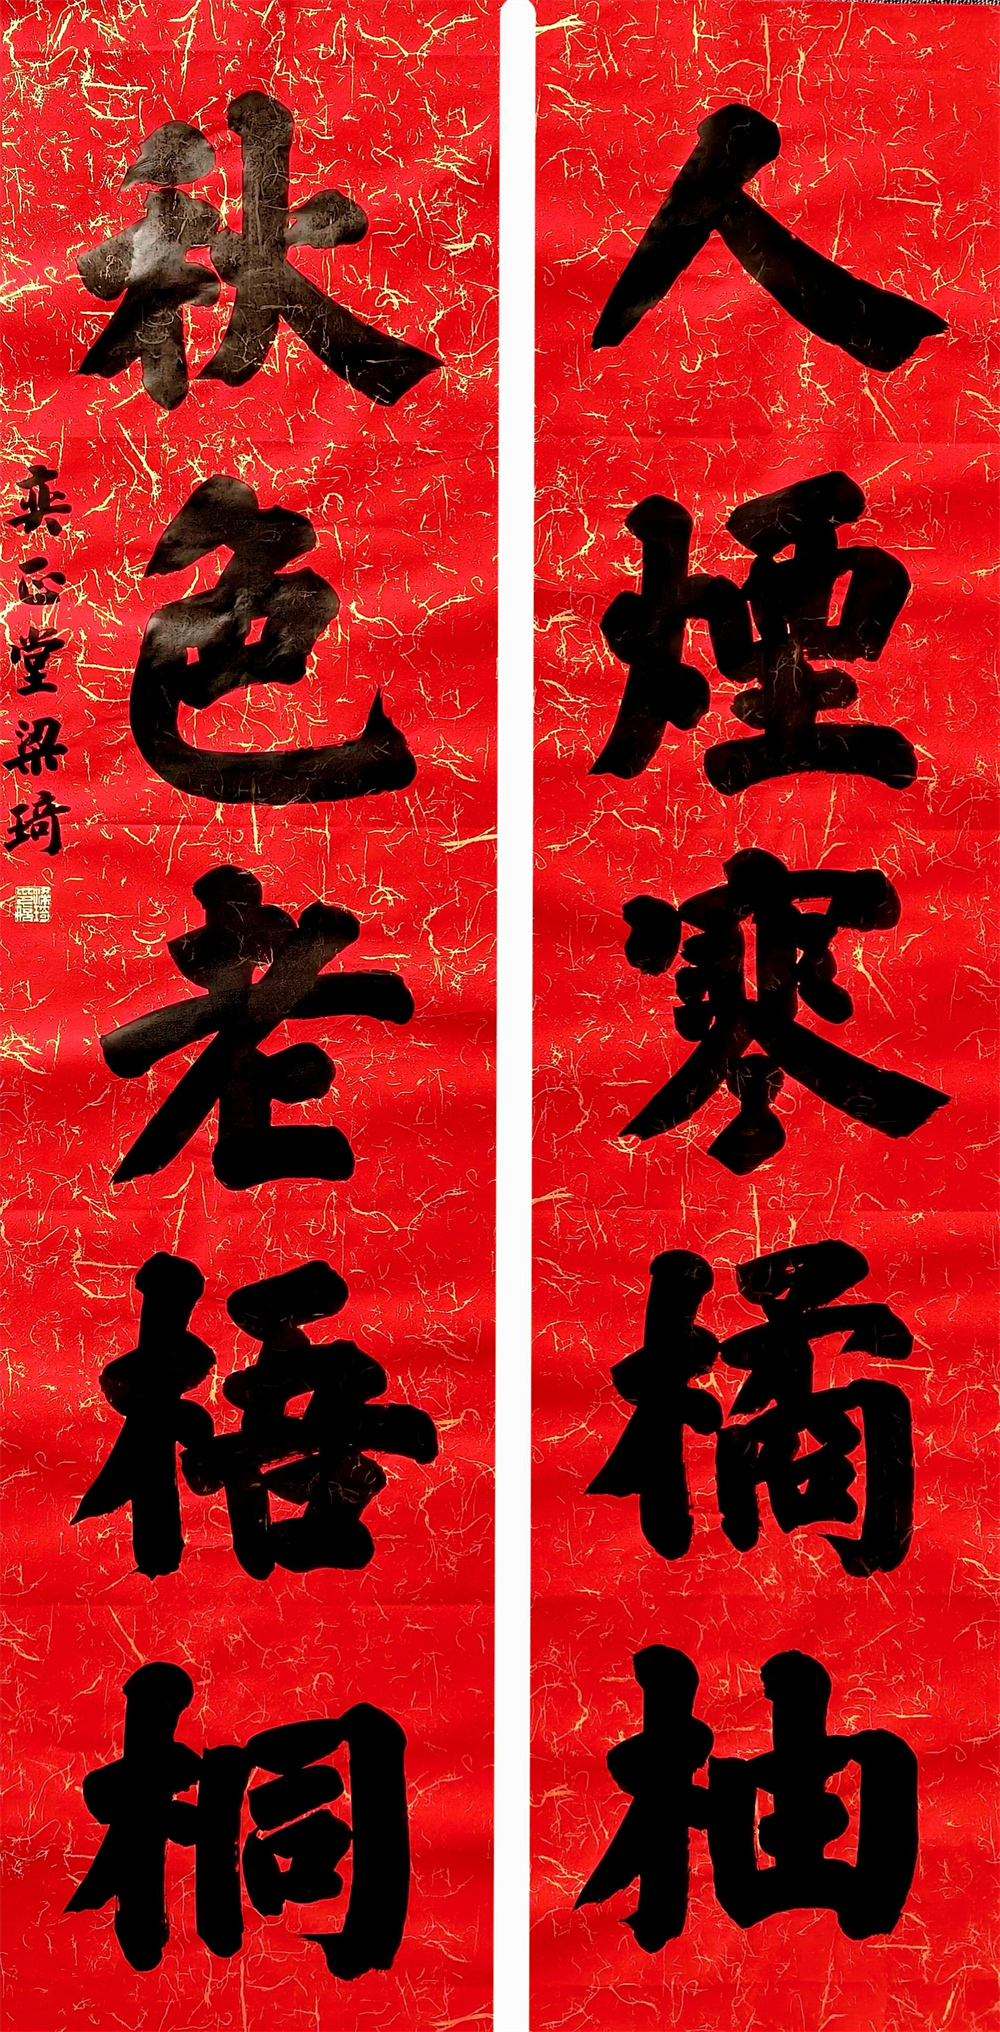 人煙寒橘柚
秋色老梧桐
奕正堂梁琦